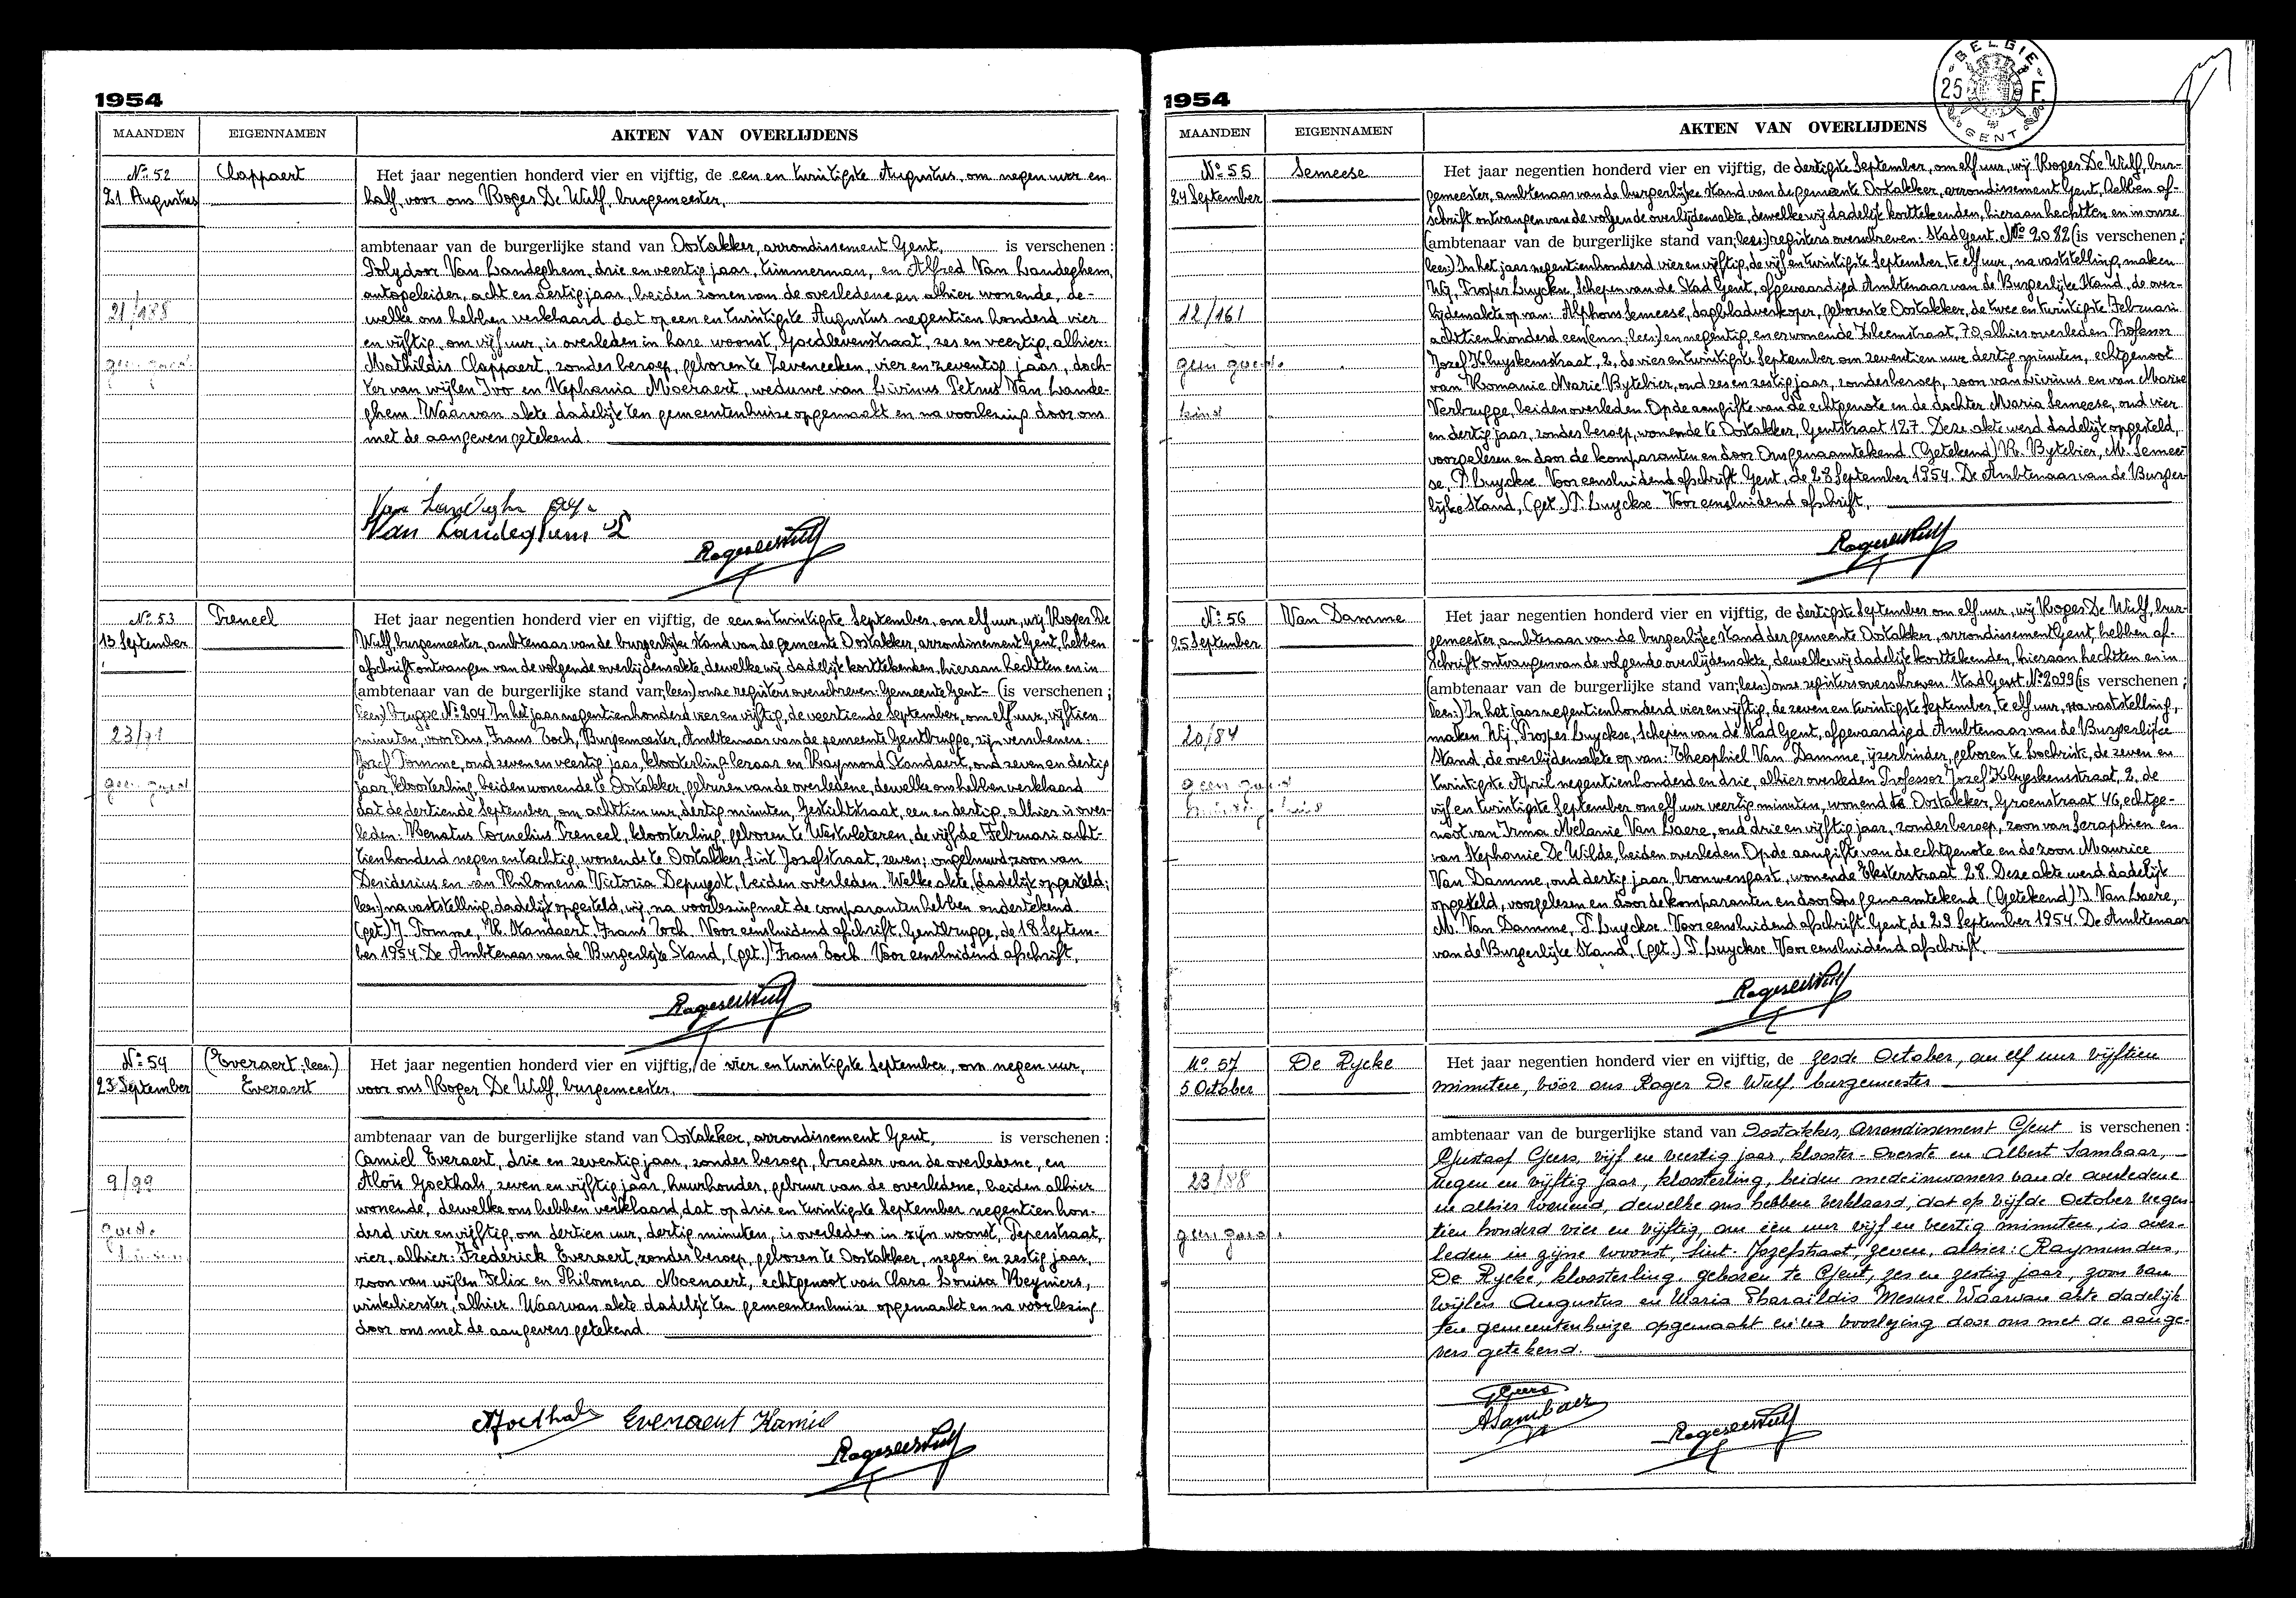 1954
MAANDEN
EIGENNAMEN
AKTEN VAN OVERLIJDENS
Nº 52
21 Augustus
Clappaert
21/185
Het jaar negentien honderd vier en vijftig, de een en twintigste Augustus, om negen uur en
half, voor ons Roger De Wulf, burgemeester,
ambtenaar van de burgerlijke stand van Oostakker, arrondissement Gent, is verschenen :
Polydoor Van Landeghem, drie en veertig jaar, timmerman, en Alfred Van Landeghem,
autogeleider, acht en dertig jaar, beiden zonen van de overledene en alhier wonende, de-
welke ons hebben verklaard dat op een en twintigste Augustus negentien honderd vier
en vijftig, om vijf uur, is overleden in hare woonst, Goedlevenstraat, zes en veertig, alhier:
Mathildis Clappaert, zonder beroep, geboren te Zeveneeken, vier en zeventig jaar, doch-
ter van wijlen Ivo en Stephania Moeraert, weduwe van Livinus Petrus Van Lande-
ghem. Waarvan akte dadelijk ten gemeentenhuize opgemaakt en na voorlezing door ons
met de aangevers getekend.
Van Landeghem
Roger De Wulf
Nº 53
13 September
Preneel
23/71
Het jaar negentien honderd vier en vijftig, de een en twintigste September, om elf uur, wij Roger De
Wulf, burgemeester, ambtenaar van de burgerlijke stand van de gemeente Oostakker, arrondissement Gent, hebben
afschrift ontvangen van de volgende overlijdensakte, dewelke wij dadelijk korttekenden, hieraan hechtten en in
(ambtenaar van de burgerlijke stand van; lees:) onze registers overschreven: Gemeente Gent- (is verschenen ;
lees:) brugge Nº 204. In het jaar negentienhonderd vier en vijftig, de veertiende September, om elf uur, vijftien
minuten, voor Ons, Frans Toch, Burgemeester, Ambtenaar van de gemeente Gentbrugge, zijn verschenen:
Jozef Pomme, oud zeven en veertig jaar, kloosterling leraar en Raymond Standaert, oud zeven en dertig
jaar, kloosterling, beiden wonende te Oostakker, geburen van de overledene, dewelke ons hebben verklaard
dat de dertiende September, om achttien uur, dertig minuten, Gestichtstraat, een en dertig, alhier is over-
leden: Renatus Cornelius Preneel, kloosterling, geboren te Westvleteren, de vijfde Februari acht-
tienhonderd negen en tachtig, wonende te Oostakker, Sint Jozefstraat, zeven; ongehuwd zoon van
Desiderius en van Philomena Victoria Depuydt, beiden overleden. Welke akte, (dadelijk opgesteld;
lees:) na vaststelling, dadelijk opgesteld, wij, na voorlezing met de comparanten hebben ondertekend.
(get.) J. Pomme, R. Standaert, Frans Toch. Voor eensluidend afschrift, Gentbrugge, de 18 Septem-
ber 1954. De Ambtenaar van de Burgerlijke Stand, (get.) Frans Toch. Voor eensluidend afschrift,
Roger De Wulf
Nº 54
23 September
(Everaert; lees:)
Everaert
9/99
Het jaar negentien honderd vier en vijftig, de vier en twintigste September, om negen uur,
voor ons Roger De Wulf, burgemeester,
ambtenaar van de burgerlijke stand van Oostakker, arrondissement Gent, is verschenen :
Camiel Everaert, drie en zeventig jaar, zonder beroep, broeder van de overledene, en
Aloïs Goethals, zeven en vijftig jaar, huurhouder, gebuur van de overledene, beiden alhier
wonende, dewelke ons hebben verklaard, dat op drie en twintigste September negentien hon-
derd vier en vijftig, om dertien uur, dertig minuten, is overleden in zijn woonst, Peperstraat,
vier, alhier: Frederick Everaert, zonder beroep, geboren te Oostakker, negen en zestig jaar,
zoon van wijlen Felix en Philomena Moenaert, echtgenoot van Clara Louisa Reyniers,
winkelierster, alhier. Waarvan akte dadelijk ten gemeentenhuize opgemaakt en na voorlezing
door ons met de aangevers getekend.
AGoethals Everaert Kamiel
Roger De Wulf
1954
BELGIE
25 F.
GENT
MAANDEN
EIGENNAMEN
AKTEN VAN OVERLIJDENS
Nº 55
24 September
Semeese
12/161
geen goed
kind
Het jaar negentien honderd vier en vijftig, de dertigste September, om elf uur, wij Roger De Wulf, bur-
gemeester, ambtenaar van de burgerlijke stand van de gemeente Oostakker, arrondissement Gent, hebben af-
schrift ontvangen van de volgende overlijdensakte, dewelke wij dadelijk korttekenden, hieraan hechtten en in onze
(ambtenaar van de burgerlijke stand van; lees:) registers overschreven: Stad Gent. Nº 2082 (is verschenen ;
lees:) In het jaar negentienhonderd vier en vijftig, de vijf en twintigste September, te elf uur, na vaststelling, maken
Wij, Prosper Luyckse, Schepen van de Stad Gent, afgevaardigd Ambtenaar van de Burgerlijke Stand, de over-
lijdensakte op van: Alphons Semeese, dagbladverkoper, geboren te Oostakker, de twee en twintigste Februari
achttienhonderd een(enn; lees:) en negentig, en er wonende Ileenstraat, 70, alhier overleden Professor
Jozef Kluyskensstraat, 2, de vier en twintigste September om zeventien uur dertig minuten, echtgenoot
van Romanie Marie Bytebier, oud zes en zestig jaar, zonder beroep, zoon van Livinus en van Marie
Verbrugge, beiden overleden. Op de aangifte van de echtgenote en de dochter Maria Semeese, oud vier
en dertig jaar, zonder beroep, wonende te Oostakker, Gentstraat 127. Deze akte werd dadelijk opgesteld,
voorgelezen en door de komparanten en door Ons genaamtekend. (Getekend) R. Bytebier, M. Semee-
se, P. Luyckse. Voor eensluidend afschrift. Gent, de 28 September 1954. De Ambtenaar van de Burger-
lijke Stand, (get.) P. Luyckse. Voor eensluidend afschrift,
Roger De Wulf
Nº 56
25 September
Van Damme
20/84
Het jaar negentien honderd vier en vijftig, de dertigste September om elf uur, wij Roger De Wulf, bur-
gemeester, ambtenaar van de burgerlijke stand der gemeente Oostakker, arrondissement Gent, hebben af-
schrift ontvangen van de volgende overlijdensakte, dewelke wij dadelijk korttekenden, hieraan hechtten en in
(ambtenaar van de burgerlijke stand van; lees:) onze registers overschreven. Stad Gent. Nº 2099 (is verschenen ;
lees:) In het jaar negentienhonderd vier en vijftig, de zeven en twintigste September, te elf uur, na vaststelling,
maken Wij, Prosper Luyckse, Schepen van de Stad Gent, afgevaardigd Ambtenaar van de Burgerlijke
Stand, de overlijdensakte op van: Theophiel Van Damme, ijzerbinder, geboren te Lochristi, de zeven en
twintigste April negentienhonderd en drie, alhier overleden Professor Jozef Kluyskensstraat, 2, de
vijf en twintigste September om elf uur veertig minuten, wonend te Oostakker, Groenstraat 46, echtge-
noot van Irma Melanie Van Laere, oud drie en vijftig jaar, zonder beroep, zoon van Seraphien en
van Stephanie De Wilde, beiden overleden. Op de aangifte van de echtgenote en de zoon Maurice
Van Damme, oud dertig jaar, brouwersgast, wonende Eksterstraat 28. Deze akte werd dadelijk
opgesteld, voorgelezen en door de komparanten en door Ons genaamtekend (Getekend) I. Van Laere,
M. Van Damme, P. Luyckse. Voor eensluidend afschrift. Gent, de 29 September 1954. De Ambtenaar
van de Burgerlijke Stand, (get.) P. Luyckse. Voor eensluidend afschrift.
Roger De Wulf
Nº 57
5 October
De Rycke
23/88
Het jaar negentien honderd vier en vijftig, de zesde October, om elf uur vijftien
minuten, vóór ons Roger De Wulf burgemeester
ambtenaar van de burgerlijke stand van Oostakker, Arrondissement Gent is verschenen :
Gustaaf Geers, vijf en veertig jaar, klooster-overste en Albert Sambaer,
negen en vijftig jaar, kloosterling, beiden medeinwoners van de overledene
en alhier wonend, dewelke ons hebben verklaard, dat op vijfde October negen-
tien honderd vier en vijftig, om één uur vijf en veertig minuten, is over-
leden in zijne woonst, Sint-Jozefstraat, zeven, alhier: Raymundus,
De Rycke, kloosterling, geboren te Gent, zes en zestig jaar, zoon van
wijlen Augustus en Maria Pharaïldis Mesure. Waarvan akte dadelijk
ten gemeentenhuize opgemaakt en na voorlezing door ons met de aange-
vers getekend.
GGeers
ASambaer
Roger De Wulf